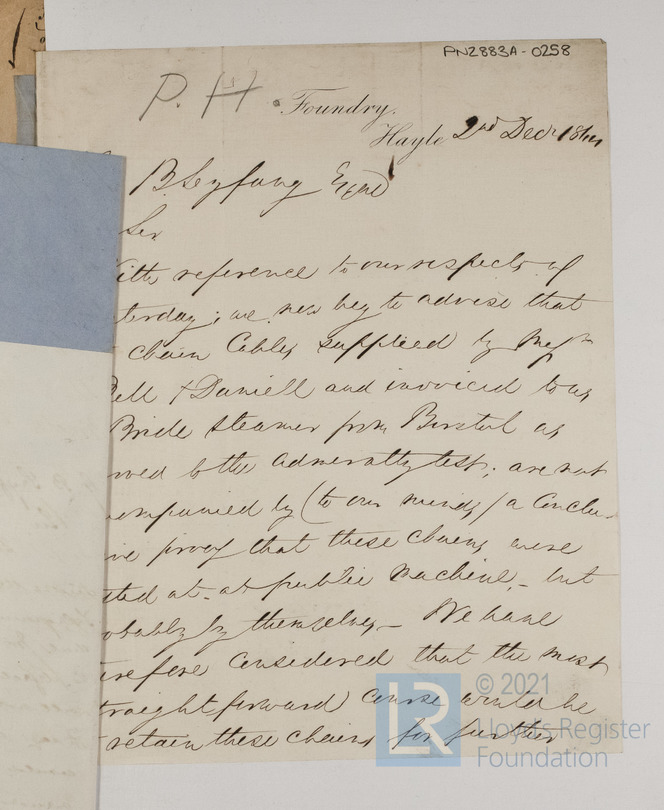 PN2883A-0258
P. H
Foundry,
Hayle 2nd Decr 1864
B. Seyfang Esqre
Sir
ith reference to our respects of
terday; we now beg to advise that
chain Cables supplied by Messrs
ell & Daniell and invoiced to us
Bride Steamer from Bristol as
oved to the admiralty test; are not
ompanied by (to our minds) a Conclu-
ve proof that these chains were
sted at a public Machine, – but
obably by themselves – We have
erefore Considered that the most
traightforward course would be
retain these chains for further
© 2021
LR
Lloyd's Register
Foundation